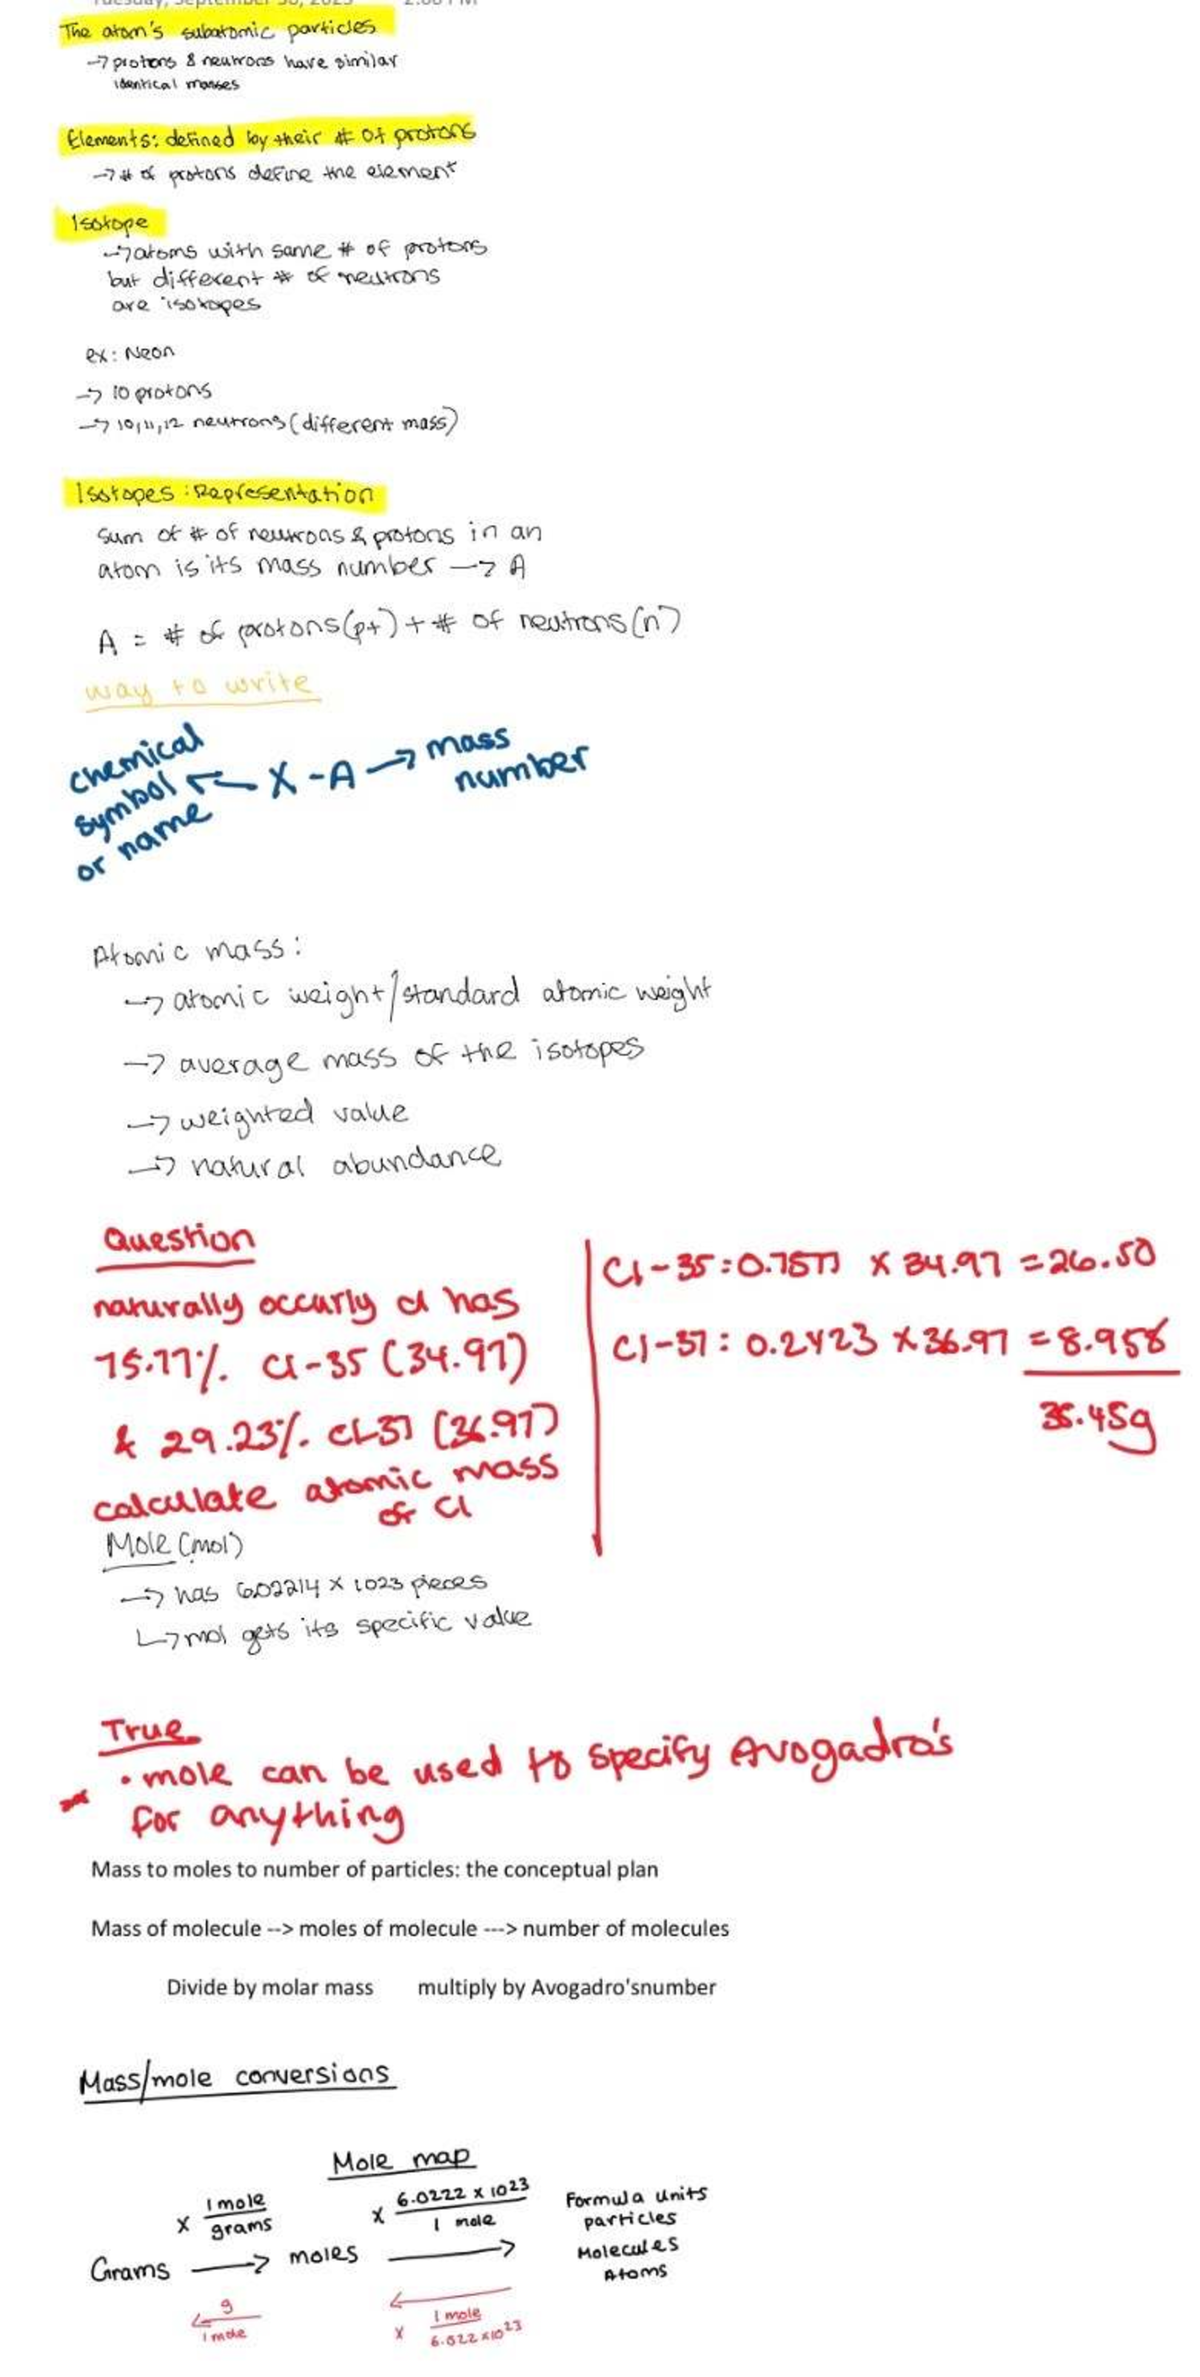 The atom's subatomic particles
→ protons & neutrons have similar
identical masses
Elements: defined by their # of protons
→ # of protons define the element
Isotope
→ atoms with same # of protons
but different # of neutrons
are isotopes
ex: Neon
→ 10 protons
→ 10, 11, 12 neutrons (different mass)
Isotopes: Representation
Sum of # of neutrons & protons in an
atom is its mass number → A
A = # of protons (p+) + # of neutrons (n)
way to write
chemical symbol or name ← X - A → mass number
Atomic mass:
→ atomic weight/standard atomic weight
→ average mass of the isotopes
→ weighted value
→ natural abundance
Question
naturally occurly Cl has
75.77% Cl-35 (34.97)
& 29.23% Cl-37 (36.97)
calculate atomic mass
of Cl
Cl-35: 0.7577 × 34.97 = 26.50
Cl-37: 0.2423 × 36.97 = 8.958
35.45g
Mole (mol)
→ has 6.02214 × 1023 pieces
↳ mol gets its specific value
True
• mole can be used to specify Avogadro's
for anything
Mass to moles to number of particles: the conceptual plan
Mass of molecule --> moles of molecule ---> number of molecules
Divide by molar mass multiply by Avogadro'snumber
Mass/mole conversions
Mole map
× 1 mole / grams
× 6.0222 × 10^23 / 1 mole
Formula units
particles
Molecules
Atoms
Grams → moles →
← g / 1 mole
← × 1 mole / 6.022 × 10^23